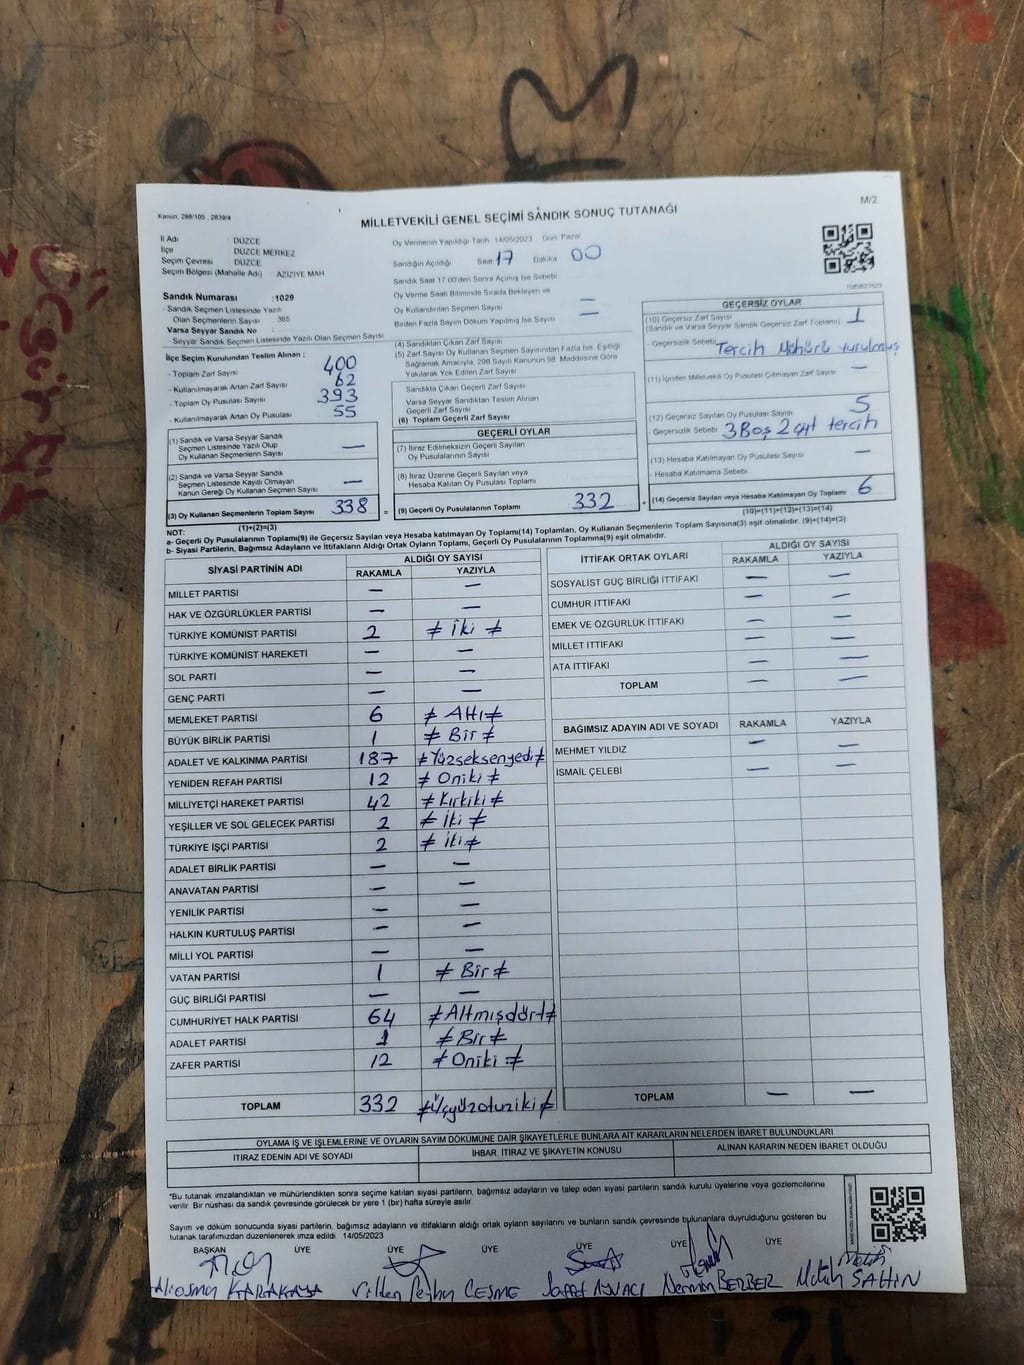 Kanun, 298/105 , 2839/4
MİLLETVEKİLİ GENEL SEÇİMİ SANDIK SONUÇ TUTANAĞI
M/2
İl Adı : DÜZCE
İlçe : DÜZCE MERKEZ
Seçim Çevresi : DÜZCE
Seçim Bölgesi (Mahalle Adı) : AZİZİYE MAH
Sandık Numarası : 1029
- Sandık Seçmen Listesinde Yazılı
Olan Seçmenlerin Sayısı 365
Varsa Seyyar Sandık No :
- Seyyar Sandık Seçmen Listesinde Yazılı Olan Seçmen Sayısı
İlçe Seçim Kurulundan Teslim Alınan ;
- Toplam Zarf Sayısı 400
- Kullanılmayarak Artan Zarf Sayısı 62
- Toplam Oy Pusulası Sayısı 393
- Kullanılmayarak Artan Oy Pusulası 55
(1) Sandık ve Varsa Seyyar Sandık
Seçmen Listesinde Yazılı Olup
Oy Kullanan Seçmenlerin Sayısı —
(2) Sandık ve Varsa Seyyar Sandık
Seçmen Listesinde Kayıtlı Olmayan
Kanun Gereği Oy Kullanan Seçmen Sayısı —
(3) Oy Kullanan Seçmenlerin Toplam Sayısı 338 =
(1)+(2)=(3)
Oy Vermenin Yapıldığı Tarih 14/05/2023 Gün Pazar
Sandığın Açıldığı Saat 17 Dakika 00
Sandık Saat 17.00'den Sonra Açılmış İse Sebebi
Oy Verme Saati Bitiminde Sırada Bekleyen ve
Oy Kullandırılan Seçmen Sayısı —
Birden Fazla Sayım Döküm Yapılmış İse Sayısı —
(4) Sandıktan Çıkan Zarf Sayısı
(5) Zarf Sayısı Oy Kullanan Seçmen Sayısından Fazla İse, Eşitliği
Sağlamak Amacıyla, 298 Sayılı Kanunun 98. Maddesine Göre
Yakılarak Yok Edilen Zarf Sayısı
Sandıkta Çıkan Geçerli Zarf Sayısı
Varsa Seyyar Sandıktan Teslim Alınan
Geçerli Zarf Sayısı
(6) Toplam Geçerli Zarf Sayısı
GEÇERLİ OYLAR
(7) İtiraz Edilmeksizin Geçerli Sayılan
Oy Pusulalarının Sayısı
(8) İtiraz Üzerine Geçerli Sayılan veya
Hesaba Katılan Oy Pusulası Toplamı
(9) Geçerli Oy Pusulalarının Toplamı 332 +
GEÇERSİZ OYLAR
(10) Geçersiz Zarf Sayısı 1
(Sandık ve Varsa Seyyar Sandık Geçersiz Zarf Toplamı)
- Geçersizlik Sebebi Tercih Mühürü vurulmuş
(11) İçinden Milletvekili Oy Pusulası Çıkmayan Zarf Sayısı —
(12) Geçersiz Sayılan Oy Pusulası Sayısı 5
- Geçersizlik Sebebi 3 Boş 2 çift tercih
(13) Hesaba Katılmayan Oy Pusulası Sayısı —
- Hesaba Katılmama Sebebi
(14) Geçersiz Sayılan veya Hesaba Katılmayan Oy Toplamı 6
(10)+(11)+(12)+(13)=(14)
NOT:
a- Geçerli Oy Pusulaları Toplamı(9) ile Geçersiz Sayılan veya Hesaba katılmayan Oy Toplamı(14) Toplamları, Oy Kullanan Seçmenlerin Toplam Sayısına(3) eşit olmalıdır. (9)+(14)=(3)
b- Siyasi Partilerin, Bağımsız Adayların ve İttifakların Aldığı Ortak Oyların Toplamı, Geçerli Oy Pusulalarının Toplamına(9) eşit olmalıdır.
SİYASİ PARTİNİN ADI ALDIĞI OY SAYISI
RAKAMLA YAZIYLA
MİLLET PARTİSİ — —
HAK VE ÖZGÜRLÜKLER PARTİSİ — —
TÜRKİYE KOMÜNİST PARTİSİ 2 ≠ İki ≠
TÜRKİYE KOMÜNİST HAREKETİ — —
SOL PARTİ — —
GENÇ PARTİ — —
MEMLEKET PARTİSİ 6 ≠ Altı ≠
BÜYÜK BİRLİK PARTİSİ 1 ≠ Bir ≠
ADALET VE KALKINMA PARTİSİ 187 ≠ Yüzseksenyedi ≠
YENİDEN REFAH PARTİSİ 12 ≠ Oniki ≠
MİLLİYETÇİ HAREKET PARTİSİ 42 ≠ Kırkiki ≠
YEŞİLLER VE SOL GELECEK PARTİSİ 2 ≠ İki ≠
TÜRKİYE İŞÇİ PARTİSİ 2 ≠ İki ≠
ADALET BİRLİK PARTİSİ — —
ANAVATAN PARTİSİ — —
YENİLİK PARTİSİ — —
HALKIN KURTULUŞ PARTİSİ — —
MİLLİ YOL PARTİSİ — —
VATAN PARTİSİ 1 ≠ Bir ≠
GÜÇ BİRLİĞİ PARTİSİ — —
CUMHURİYET HALK PARTİSİ 64 ≠ Altmışdört ≠
ADALET PARTİSİ 1 ≠ Bir ≠
ZAFER PARTİSİ 12 ≠ Oniki ≠
TOPLAM 332 ≠ Üçyüzotuziki ≠
İTTİFAK ORTAK OYLARI ALDIĞI OY SAYISI
RAKAMLA YAZIYLA
SOSYALİST GÜÇ BİRLİĞİ İTTİFAKI — —
CUMHUR İTTİFAKI — —
EMEK VE ÖZGÜRLÜK İTTİFAKI — —
MİLLET İTTİFAKI — —
ATA İTTİFAKI — —
TOPLAM — —
BAĞIMSIZ ADAYIN ADI VE SOYADI RAKAMLA YAZIYLA
MEHMET YILDIZ — —
İSMAİL ÇELEBİ — —
TOPLAM — —
OYLAMA İŞ VE İŞLEMLERİNE VE OYLARIN SAYIM DÖKÜMÜNE DAİR ŞİKAYETLERLE BUNLARA AİT KARARLARIN NELERDEN İBARET BULUNDUKLARI
İTİRAZ EDENİN ADI VE SOYADI İHBAR, İTİRAZ VE ŞİKAYETİN KONUSU ALINAN KARARIN NEDEN İBARET OLDUĞU
*Bu tutanak imzalandıktan ve mühürlendikten sonra seçime katılan siyasi partilerin, bağımsız adayların ve talep eden siyasi partilerin sandık kurulu üyelerine veya gözlemcilerine
verilir. Bir nüshası da sandık çevresinde görülecek bir yere 1 (bir) hafta süreyle asılır.
Sayım ve döküm sonucunda siyasi partilerin, bağımsız adayların ve ittifakların aldığı ortak oyların sayılarını ve bunların sandık çevresinde bulunanlara duyrulduğunu gösteren bu
tutanak tarafımızdan düzenlenerek imza edildi. 14/05/2023
BAŞKAN ÜYE ÜYE ÜYE ÜYE ÜYE ÜYE
Aliosman KARAKAYA Vilden Peyhan ÇEŞME Saffet AYNACI Nermin BERBER Melih ŞAHİN